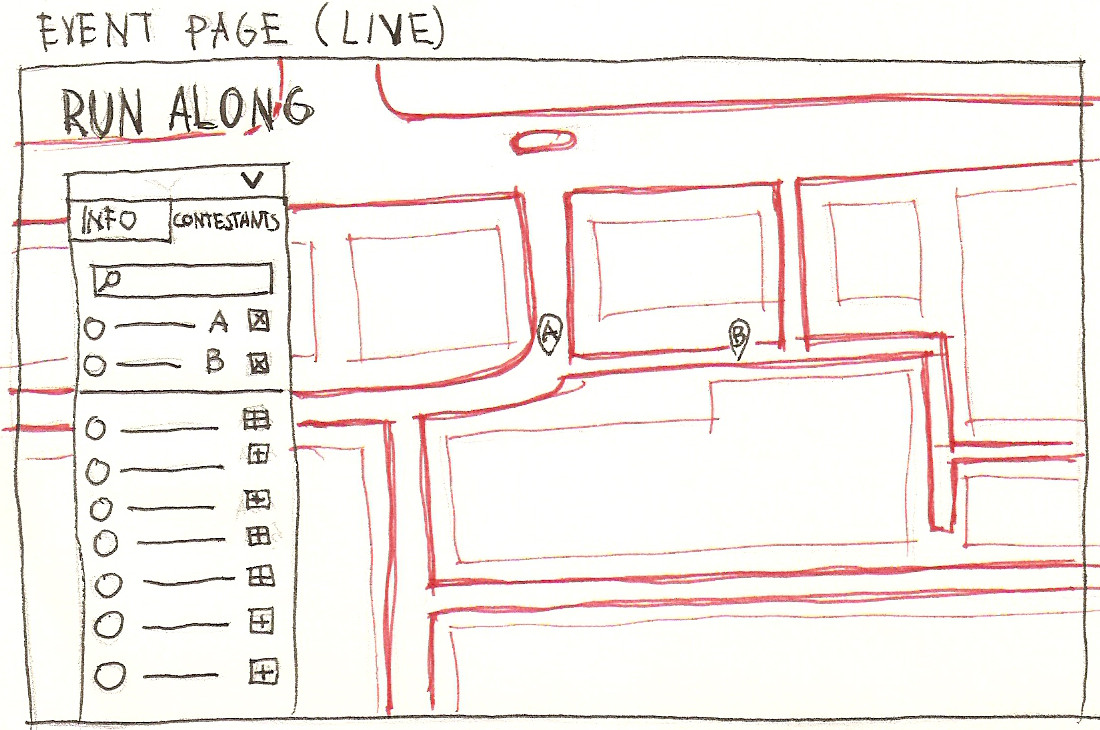 EVENT PAGE (LIVE)
RUN ALONG
INFO CONTESTANTS
A
B
A
B